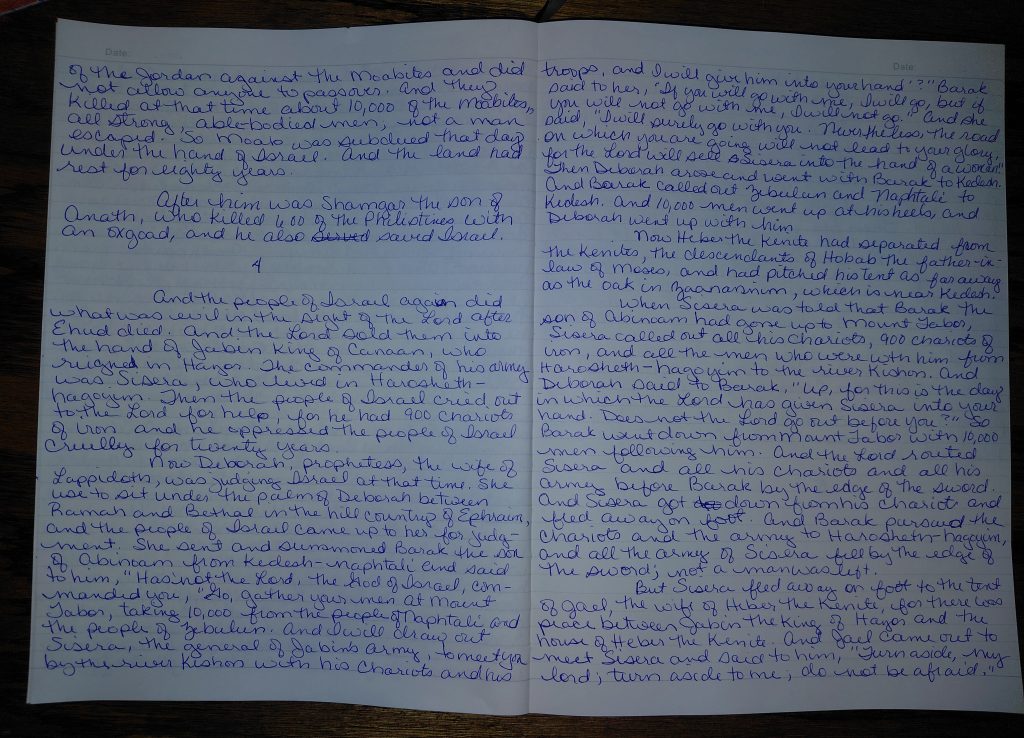 Date:
of the Jordan against the Moabites and did
not allow anyone to passover. And they
killed at that time about 10,000 of the Moabites,
all strong, able-bodied men, not a man
escaped. So Moab was subdued that day
under the hand of Israel. And the land had
rest for eighty years.
After him was Shamgar the son of
Anath, who killed 600 of the Philistines with
an oxgoad, and he also saved Israel.
4
And the people of Israel again did
what was evil in the sight of the Lord after
Ehud died. And the Lord sold them into
the hand of Jabin King of Canaan, who
reigned in Hazor. The commander of his army
was Sisera, who lived in Harosheth-
hagoyim. Then the people of Israel cried out
to the Lord for help, for he had 900 chariots
of iron and he oppressed the people of Israel
cruelly for twenty years.
Now Deborah, prophetess, the wife of
Lappidoth, was judging Israel at that time. She
use to sit under the palm of Deborah between
Ramah and Bethal in the hill country of Ephraim,
and the people of Israel came up to her for judg-
ment. She sent and summoned Barak the son
of Abinoam from Kedesh-naphtali and said
to him, "Has not the Lord, the God of Israel, com-
manded you, "Go, gather your men at Mount
Tabor, taking 10,000 from the people of Naphtali and
the people of Zebulun. And I will draw out
Sisera, the general of Jabins army, to meet you
by the river Kishon with his chariots and his
Date:
troops, and I will give him into your hand'?" Barak
said to her, "If you will go with me, I will go, but if
you will not go with me, I will not go." And she
said, "I will surely go with you. Nevertheless, the road
on which you are going will not lead to your glory,
for the Lord will sell Sisera into the hand of a woman."
Then Deborah arose and went with Barak to Kedesh.
And Barak called out Zebulun and Naphtali to
Kedesh. And 10,000 men went up at his heels, and
Deborah went up with him
Now Heber the Kenite had separated from
the Kenites, the descendants of Hobab the father-in-
law of Moses, and had pitched his tent as far away
as the oak in Zaanannim, which is near Kedesh.
When Sisera was told that Barak the
son of Abinoam had gone up to Mount Tabor,
Sisera called out all his chariots, 900 chariots of
iron, and all the men who were with him from
Harosheth-hagoyim to the river Kishon. And
Deborah said to Barak, "Up, for this is the day
in which the Lord has given Sisera into your
hand. Does not the Lord go out before you?" So
Barak went down from Mount Tabor with 10,000
men following him. And the Lord routed
Sisera and all his chariots and all his
army before Barak by the edge of the sword.
And Sisera got down from his chariot and
fled away on foot. And Barak pursued the
chariots and the army to Harosheth-hagoyim,
and all the army of Sisera fell by the edge of
the sword; not a man was left.
But Sisera fled away on foot to the tent
of Jael, the wife of Heber the Kenite, for there was
peace between Jabin the King of Hazor and the
house of Heber the Kenite. And Jael came out to
meet Sisera and said to him, "Turn aside, my
lord; turn aside to me; do not be afraid."